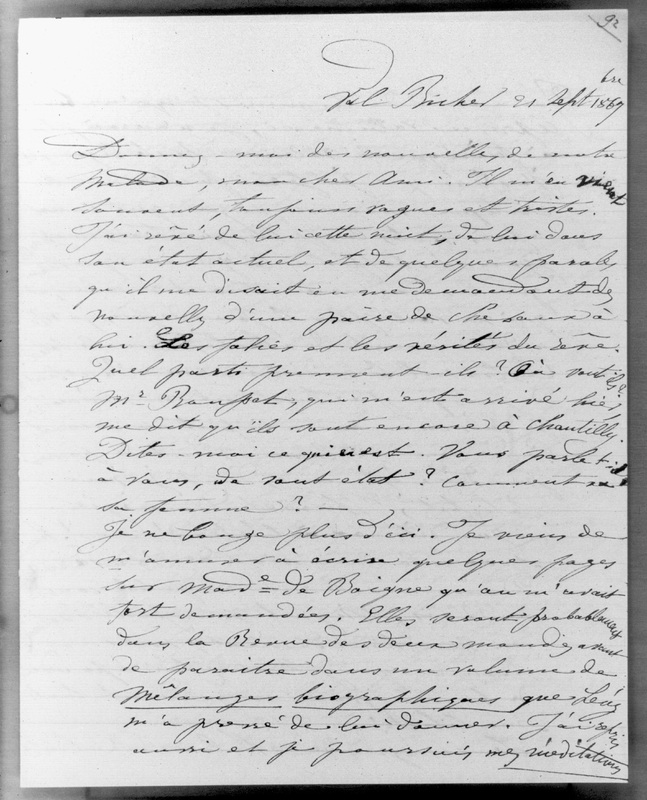 92
Val Richer 21 Sept bre 1867
Donnez-moi des nouvelles de notre
malade, mon cher Ami. Il m'en vient
souvent, toujours vagues et tristes.
J'ai rêvé de lui cette nuit, de lui dans
son état actuel, et de quelques paroles
qu'il me disait en me demandant des
nouvelles d'une paire de chevaux à
lui. Les folies et les vérités du rêve.
Quel parti prennent-ils ? Où vont-ils ?
Mr , qui m'est arrivé hier,
me dit qu'ils sont encore à Chantilly.
Dites-moi ce qui en est. Vous parle-t-il
à vous, de son état ? Comment va
sa femme ? —
Je ne bouge plus d'ici. Je viens de
m'amuser à écrire quelques pages
sur Made de Boigne qu'on m'avait
fort demandées. Elles seront probablement
dans la Revue des deux mondes avant
de paraitre dans un volume de
Mélanges biographiques que Lévy
m'a pressé de lui donner. J'ai repris
aussi et je poursuis mes méditations